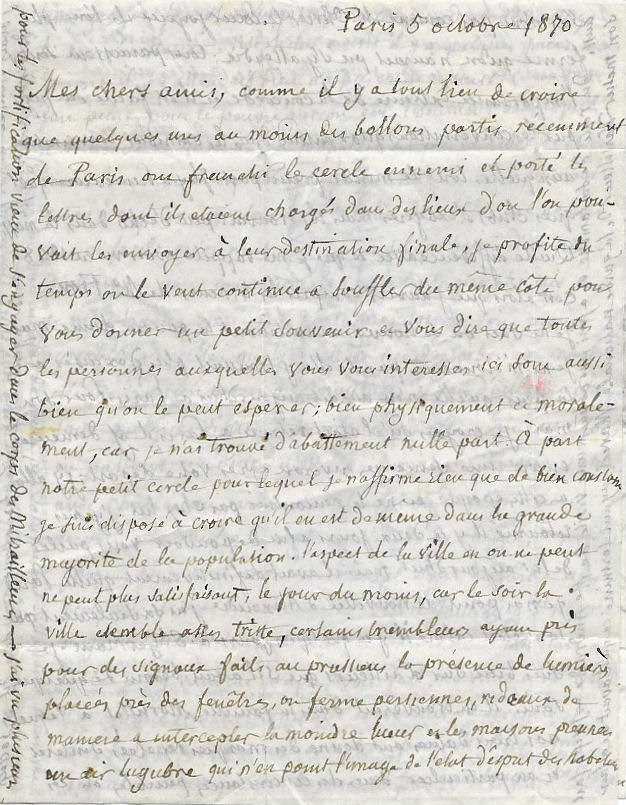 Paris 5 octobre 1870
Mes chers amis, comme il y a tout lieu de croire
que quelques uns au moins des ballons partis recemment
de Paris ont franchi le cercle ennemi et porté les
lettres dont ils étaient chargés dans des lieux d'où l'on pou-
vait les envoyer à leur destination finale, je profite du
temps ou le vent continue a souffler du même coté pour
vous donner un petit souvenir et vous dire que toutes
les personnes auxquelles vous vous interessez ici sont aussi
bien qu'on le peut esperer; bien physiquement et morale-
ment, car je n'ai trouvé d'abattement nulle part. À part
notre petit cercle pour lequel je n'affirme rien que de bien constant
je suis disposé à croire qu'il en est de meme dans la grande
majorité de la population. l'aspect de la ville est on ne peut
ne peut plus satisfaisant, le jour du moins, car le soir la
ville semble assez triste, certains trembleurs ayant pris
pour des signaux faits au prussiens la présence de lumières
placées près des fenêtres, on ferme persiennes, rideaux de
maniere a intercepter la moindre lueur et les maisons prennent
un air lugubre qui n'est point l'image de l'etat d'esprit des habitans
pour les fortifications vient de s'engager dans le corps des Mitrailleurs — j'ai vu plusieurs